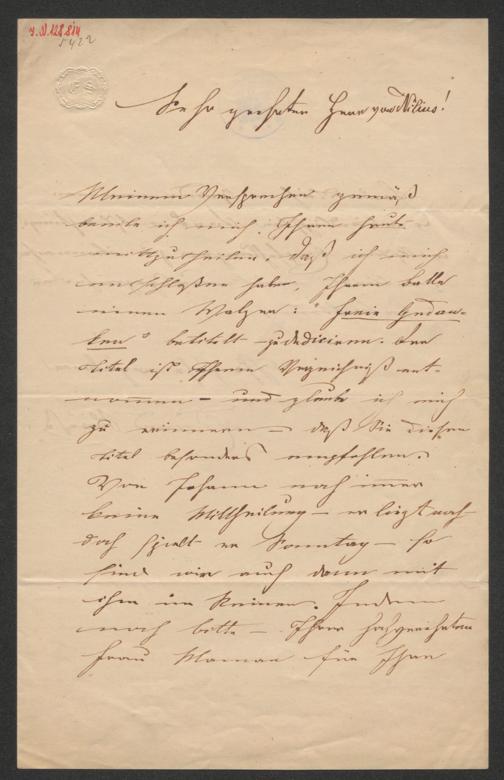 J.N. 128.814
5422
Sehr geehrter Herr von Nilius!
Meinem Versprechen gemäß
beeile ich mich, Ihnen heute
mitzutheilen, daß ich mich
entschloßen habe, Ihrem Balle
einen Walzer: "Freie Gedan-
ken" betitelt zu dediciren. Der
Titel ist Ihrem Verzeichniß ent-
nommen – und glaube ich mich
zu erinnern – daß Sie diesen
Titel besonders empfohlen.
Von Johann noch immer
keine Mittheilung – er liegt noch
doch spielt er Sonntag – so
sind wir auch dann mit
ihm im Reinen. Indem
noch bitte – Ihrer hochverehrten
Frau Maman für Ihre